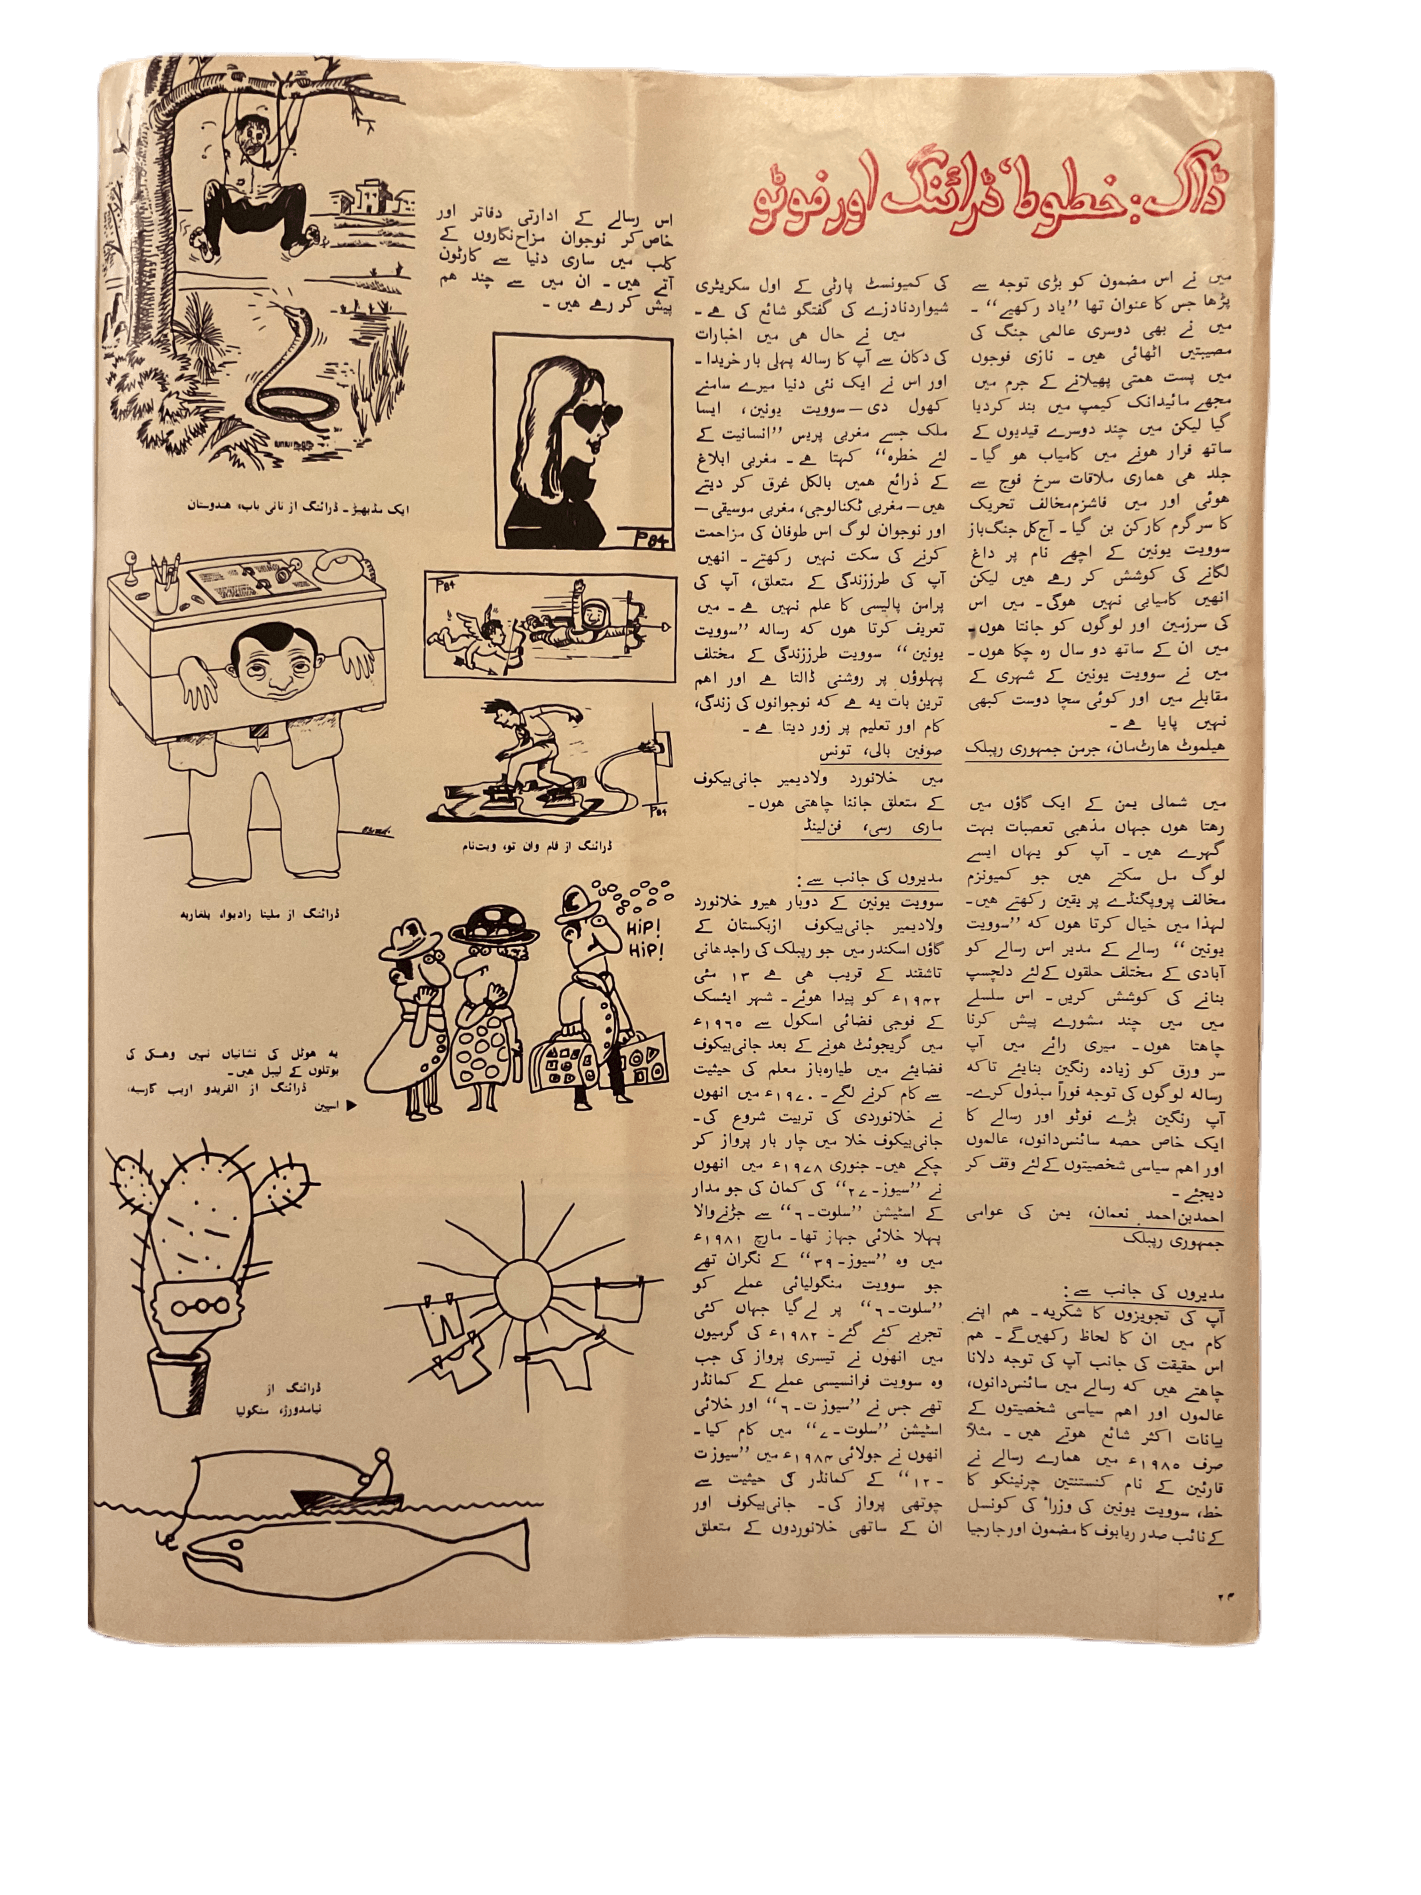 ڈاک: خطوط، ڈرائنگ اور فوٹو
میں نے اس مضمون کو بڑی توجہ سے
پڑھا جس کا عنوان تھا ”یاد رکھیے“ ۔
میں نے بھی دوسری عالمی جنگ کی
مصیبتیں اٹھائی ھیں ۔ نازی فوجوں
میں پست ھمتی پھیلانے کے جرم میں
مجھے مائیدانک کیمپ میں بند کردیا
گیا لیکن میں چند دوسرے قیدیوں کے
ساتھ فرار ھونے میں کامیاب ھو گیا ۔
جلد ھی ھماری ملاقات سرخ فوج سے
ھوئی اور میں فاشزم‌مخالف تحریک
کا سرگرم کارکن بن گیا ۔ آج‌کل جنگ‌باز
سوویت یونین کے اچھے نام پر داغ
لگانے کی کوشش کر رھے ھیں لیکن
انھیں کامیابی نہیں ھوگی ۔ میں اس
کی سرزمین اور لوگوں کو جانتا ھوں ۔
میں ان کے ساتھ دو سال رہ چکا ھوں ۔
میں نے سوویت یونین کے شہری کے
مقابلے میں اور کوئی سچا دوست کبھی
نہیں پایا ھے ۔
ھیلموٹ ھارٹ‌مان، جرمن جمہوری رپبلک
میں شمالی یمن کے ایک گاؤں میں
رھتا ھوں جہاں مذھبی تعصبات بہت
گہرے ھیں ۔ آپ کو یہاں ایسے
لوگ مل سکتے ھیں جو کمیونزم
مخالف پروپگنڈے پر یقین رکھتے ھیں ۔
لہذا میں خیال کرتا ھوں کہ ”سوویت
یونین“ رسالے کے مدیر اس رسالے کو
آبادی کے مختلف حلقوں کےلئے دلچسپ
بنانے کی کوشش کریں ۔ اس سلسلے
میں میں چند مشورے پیش کرنا
چاھتا ھوں ۔ میری رائے میں آپ
سر ورق کو زیادہ رنگین بنایئے تاکہ
رسالہ لوگوں کی توجہ فوراً مبذول کرے ۔
آپ رنگین بڑے فوٹو اور رسالے کا
ایک خاص حصہ سائنس‌دانوں، عالموں
اور اھم سیاسی شخصیتوں کےلئے وقف کر
دیجئے ۔
احمدبن‌احمد نعمان، یمن کی عوامی
جمہوری رپبلک
مدیروں کی جانب سے :
آپ کی تجویزوں کا شکریہ ۔ ھم اپنے
کام میں ان کا لحاظ رکھیں‌گے ۔ ھم
اس حقیقت کی جانب آپ کی توجہ دلانا
چاھتے ھیں کہ رسالے میں سائنس‌دانوں،
عالموں اور اھم سیاسی شخصیتوں کے
بیانات اکثر شائع ھوتے ھیں ۔ مثلاً
صرف ۱۹۸۵ء میں ھمارے رسالے نے
قارئین کے نام کنستنتین چرنینکو کا
خط، سوویت یونین کی وزرأ کی کونسل
کے نائب صدر ریابوف کا مضمون اور جارجیا
کی کمیونسٹ پارٹی کے اول سکریٹری
شیواردنادزے کی گفتگو شائع کی ھے ۔
میں نے حال ھی میں اخبارات
کی دکان سے آپ کا رسالہ پہلی بار خریدا ۔
اور اس نے ایک نئی دنیا میرے سامنے
کھول دی — سوویت یونین، ایسا
ملک جسے مغربی پریس ”انسانیت کے
لئے خطرہ“ کہتا ھے ۔ مغربی ابلاغ
کے ذرائع ھمیں بالکل غرق کر دیتے
ھیں — مغربی ٹکنالوجی، مغربی موسیقی —
اور نوجوان لوگ اس طوفان کی مزاحمت
کرنے کی سکت نہیں رکھتے ۔ انھیں
آپ کی طرززندگی کے متعلق، آپ کی
پرامن پالیسی کا علم نہیں ھے ۔ میں
تعریف کرتا ھوں کہ رسالہ ”سوویت
یونین“ سوویت طرززندگی کے مختلف
پہلوؤں پر روشنی ڈالتا ھے اور اھم
ترین بات یہ ھے کہ نوجوانوں کی زندگی،
کام اور تعلیم پر زور دیتا ھے ۔
صوفین بالی، تونس
میں خلانورد ولادیمیر جانی‌بیکوف
کے متعلق جاننا چاھتی ھوں ۔
ماری رسی، فن‌لینڈ
مدیروں کی جانب سے :
سوویت یونین کے دوبار ھیرو خلانورد
ولادیمیر جانی‌بیکوف ازبکستان کے
گاؤں اسکندر میں جو رپبلک کی راجدھانی
تاشقند کے قریب ھی ھے ۱۳ مئی
۱۹۴۲ء کو پیدا ھوئے ۔ شہر ایئسک
کے فوجی فضائی اسکول سے ۱۹۶۵ء
میں گریجوئٹ ھونے کے بعد جانی‌بیکوف
فضائیے میں طیارہ‌باز معلم کی حیثیت
سے کام کرنے لگے ۔ ۱۹۷۰ء میں انھوں
نے خلانوردی کی تربیت شروع کی ۔
جانی‌بیکوف خلا میں چار بار پرواز کر
چکے ھیں ۔ جنوری ۱۹۷۸ء میں انھوں
نے ”سیوز-۲۷“ کی کمان کی جو مدار
کے اسٹیشن ”سلوت-۶“ سے جڑنےوالا
پہلا خلائی جہاز تھا ۔ مارچ ۱۹۸۱ء
میں وہ ”سیوز-۳۹“ کے نگران تھے
جو سوویت منگولیائی عملے کو
”سلوت-۶“ پر لے‌گیا جہاں کئی
تجربے کئے گئے ۔ ۱۹۸۲ء کی گرمیوں
میں انھوں نے تیسری پرواز کی جب
وہ سوویت فرانسیسی عملے کے کمانڈر
تھے جس نے ”سیوز ت-۶“ اور خلائی
اسٹیشن ”سلوت-۷“ میں کام کیا ۔
انھوں نے جولائی ۱۹۸۴ء میں ”سیوز ت
-۱۲“ کے کمانڈر کی حیثیت سے
چوتھی پرواز کی ۔ جانی‌بیکوف اور
ان کے ساتھی خلانوردوں کے متعلق
اس رسالے کے ادارتی دفاتر اور
خاص‌کر نوجوان مزاح‌نگاروں کے
کلب میں ساری دنیا سے کارٹون
آتے ھیں ۔ ان میں سے چند ھم
پیش کر رھے ھیں ۔
P84
P84
P84
ڈرائنگ از فام وان تو، ویت‌نام
ایک مڈبھیڑ ۔ ڈرائنگ از نانی باپ، ھندوستان
ڈرائنگ از ملینا رادیوا، بلغاریہ
HiP!
HiP!
یہ ھوٹل کی نشانیاں نہیں وھسکی کی
بوتلوں کے لیبل ھیں ۔
ڈرائنگ از الفریدو اریب گارسیہ،
اسپین
ڈرائنگ از
نیامدورژ، منگولیا
۲۴